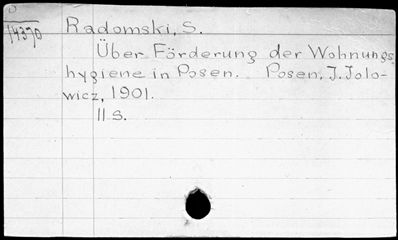 D
14370
Radomski, S.
Über Förderung der Wohnungs
hygiene in Posen. Posen, J. Jolo-
wicz, 1901.
11 S.